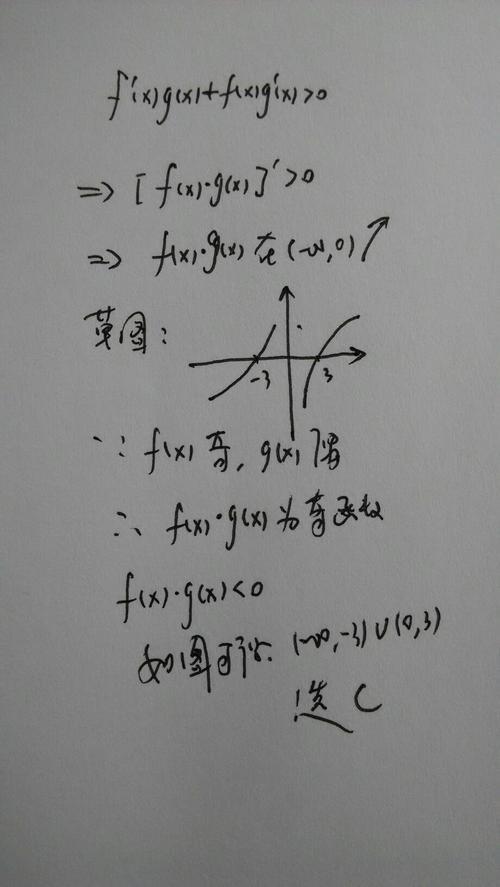 f'(x)g(x)+f(x)g'(x)>0
=> [f(x)·g(x)]'>0
=> f(x)·g(x)在(-∞,0)↗
草图:
-3 3
∵ f(x)奇, g(x)偶
∴ f(x)·g(x)为奇函数
f(x)·g(x)<0
如图可得: (-∞,-3)∪(0,3)
选 C